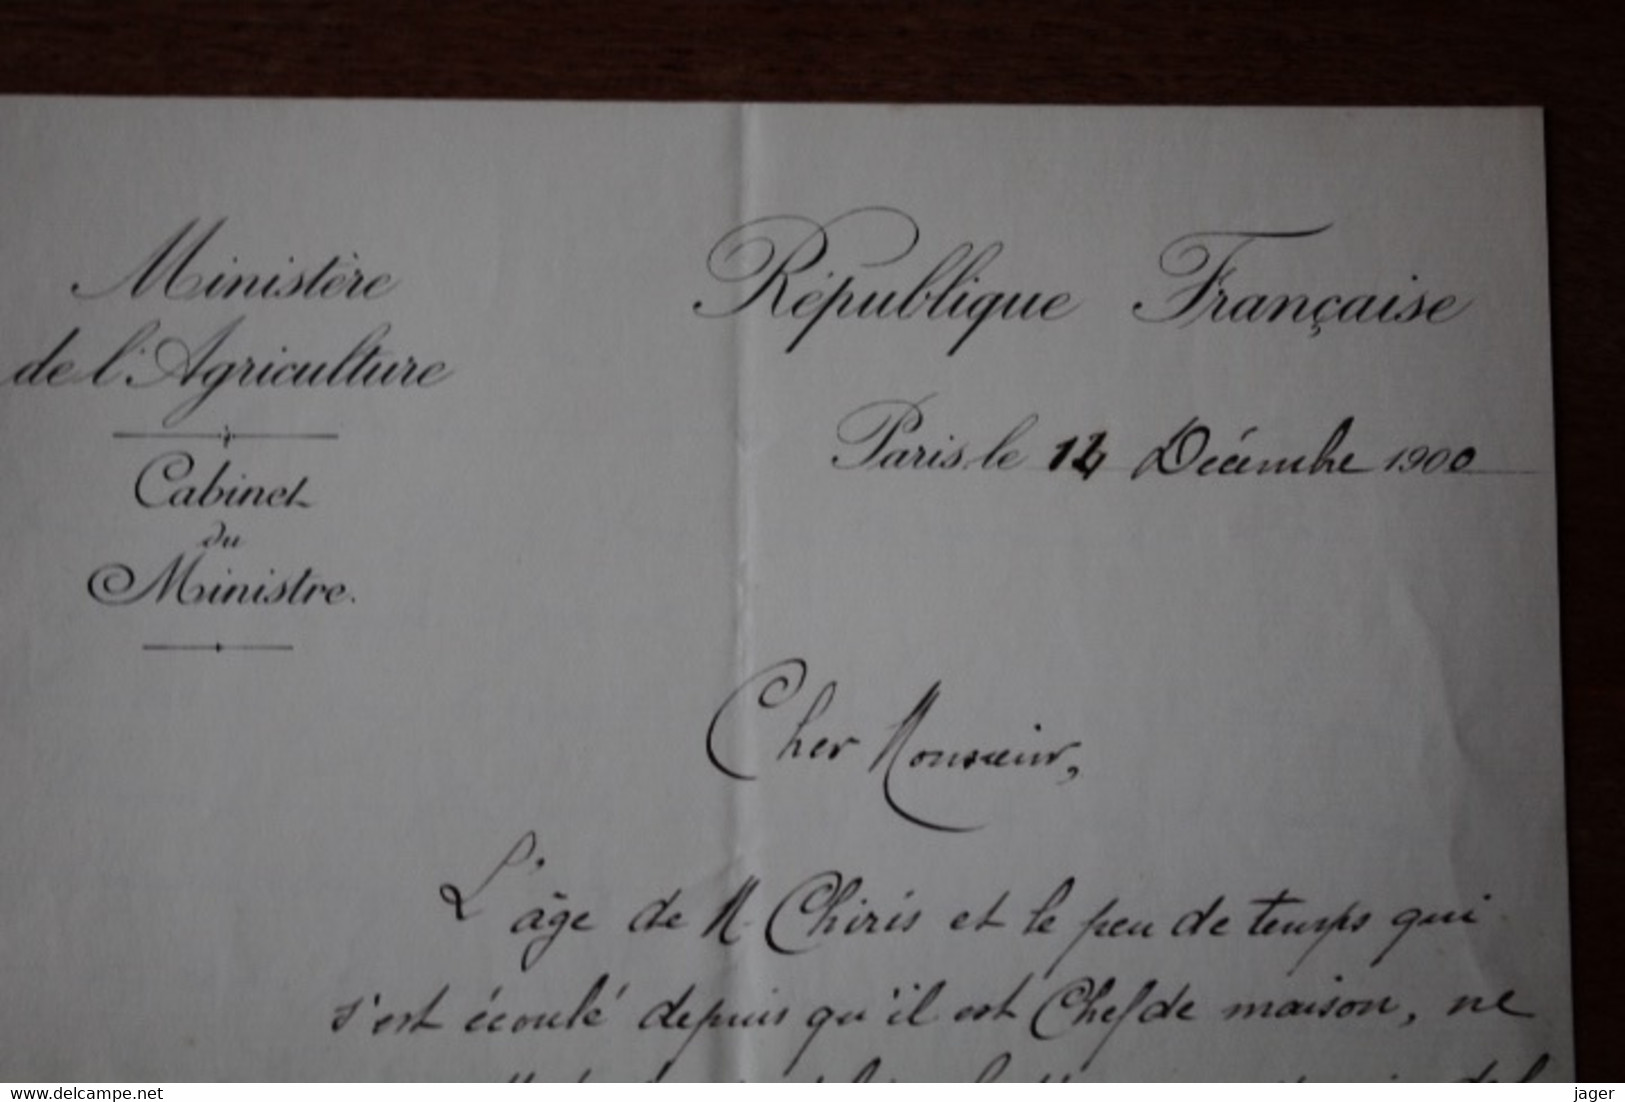 Ministère
de l'Agriculture
Cabinet
du
Ministre.
République Française
Paris, le 14 Décembre 1900
Cher Monsieur,
L'âge de M. Chiris et le peu de temps qui
s'est écoulé depuis qu'il est Chef de maison, ne
www.delcampe.net
jager